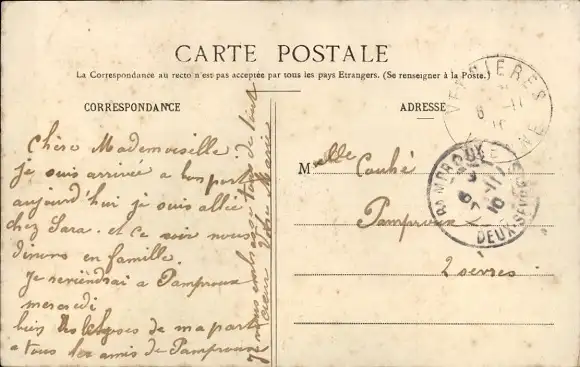 CARTE POSTALE
La Correspondance au recto n'est pas acceptée par tous les pays Etrangers. (Se renseigner à la Poste.)
CORRESPONDANCE
ADRESSE
Chère Mademoiselle
je suis arrivée a bon port
aujourd'hui je suis allée
chez Sara. et ce soir nous
dinons en famille.
Je reviendrai a Pamproux
mercredi
bien des choses de ma part
a tous les amis de Pamproux
Je vous embrasse de tout
cœur Votre Marie
Melle Couhé
Pamproux
2 sevres
VERRIERES
6 -11
PAMPROUX
6 -11
10
DEUX-SEVRES